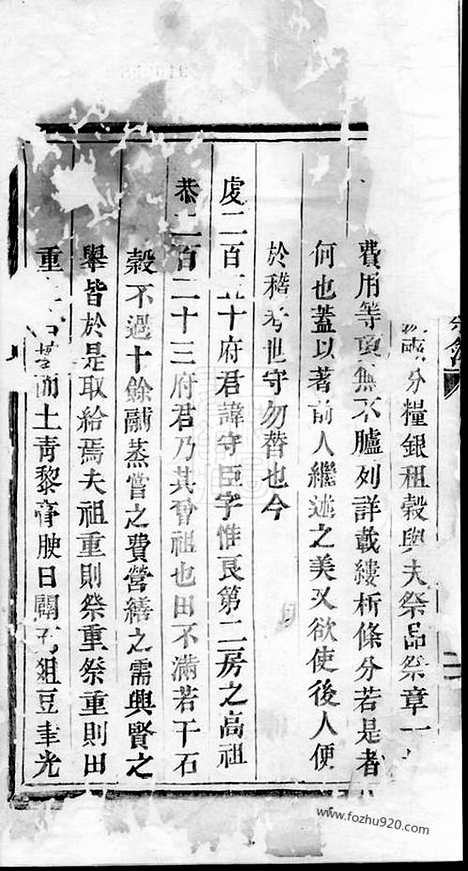 分糧銀租穀與夫祭品祭章一
費用等項無不臚列詳載縷析條分若是者
何也蓋以著前人繼述之美又欲使後人便
於稽考世守勿替也今
虔二百五十府君諱守臣字惟良第二房之高祖
恭二百二十三府君乃其曾祖也田不滿若干石
穀不過十餘蒸嘗之費營繕之需興賢之
舉皆於是取給焉夫祖重則祭重祭重則田
重而土青黎膏腴日闢俎豆聿光
www.fozhu920.com